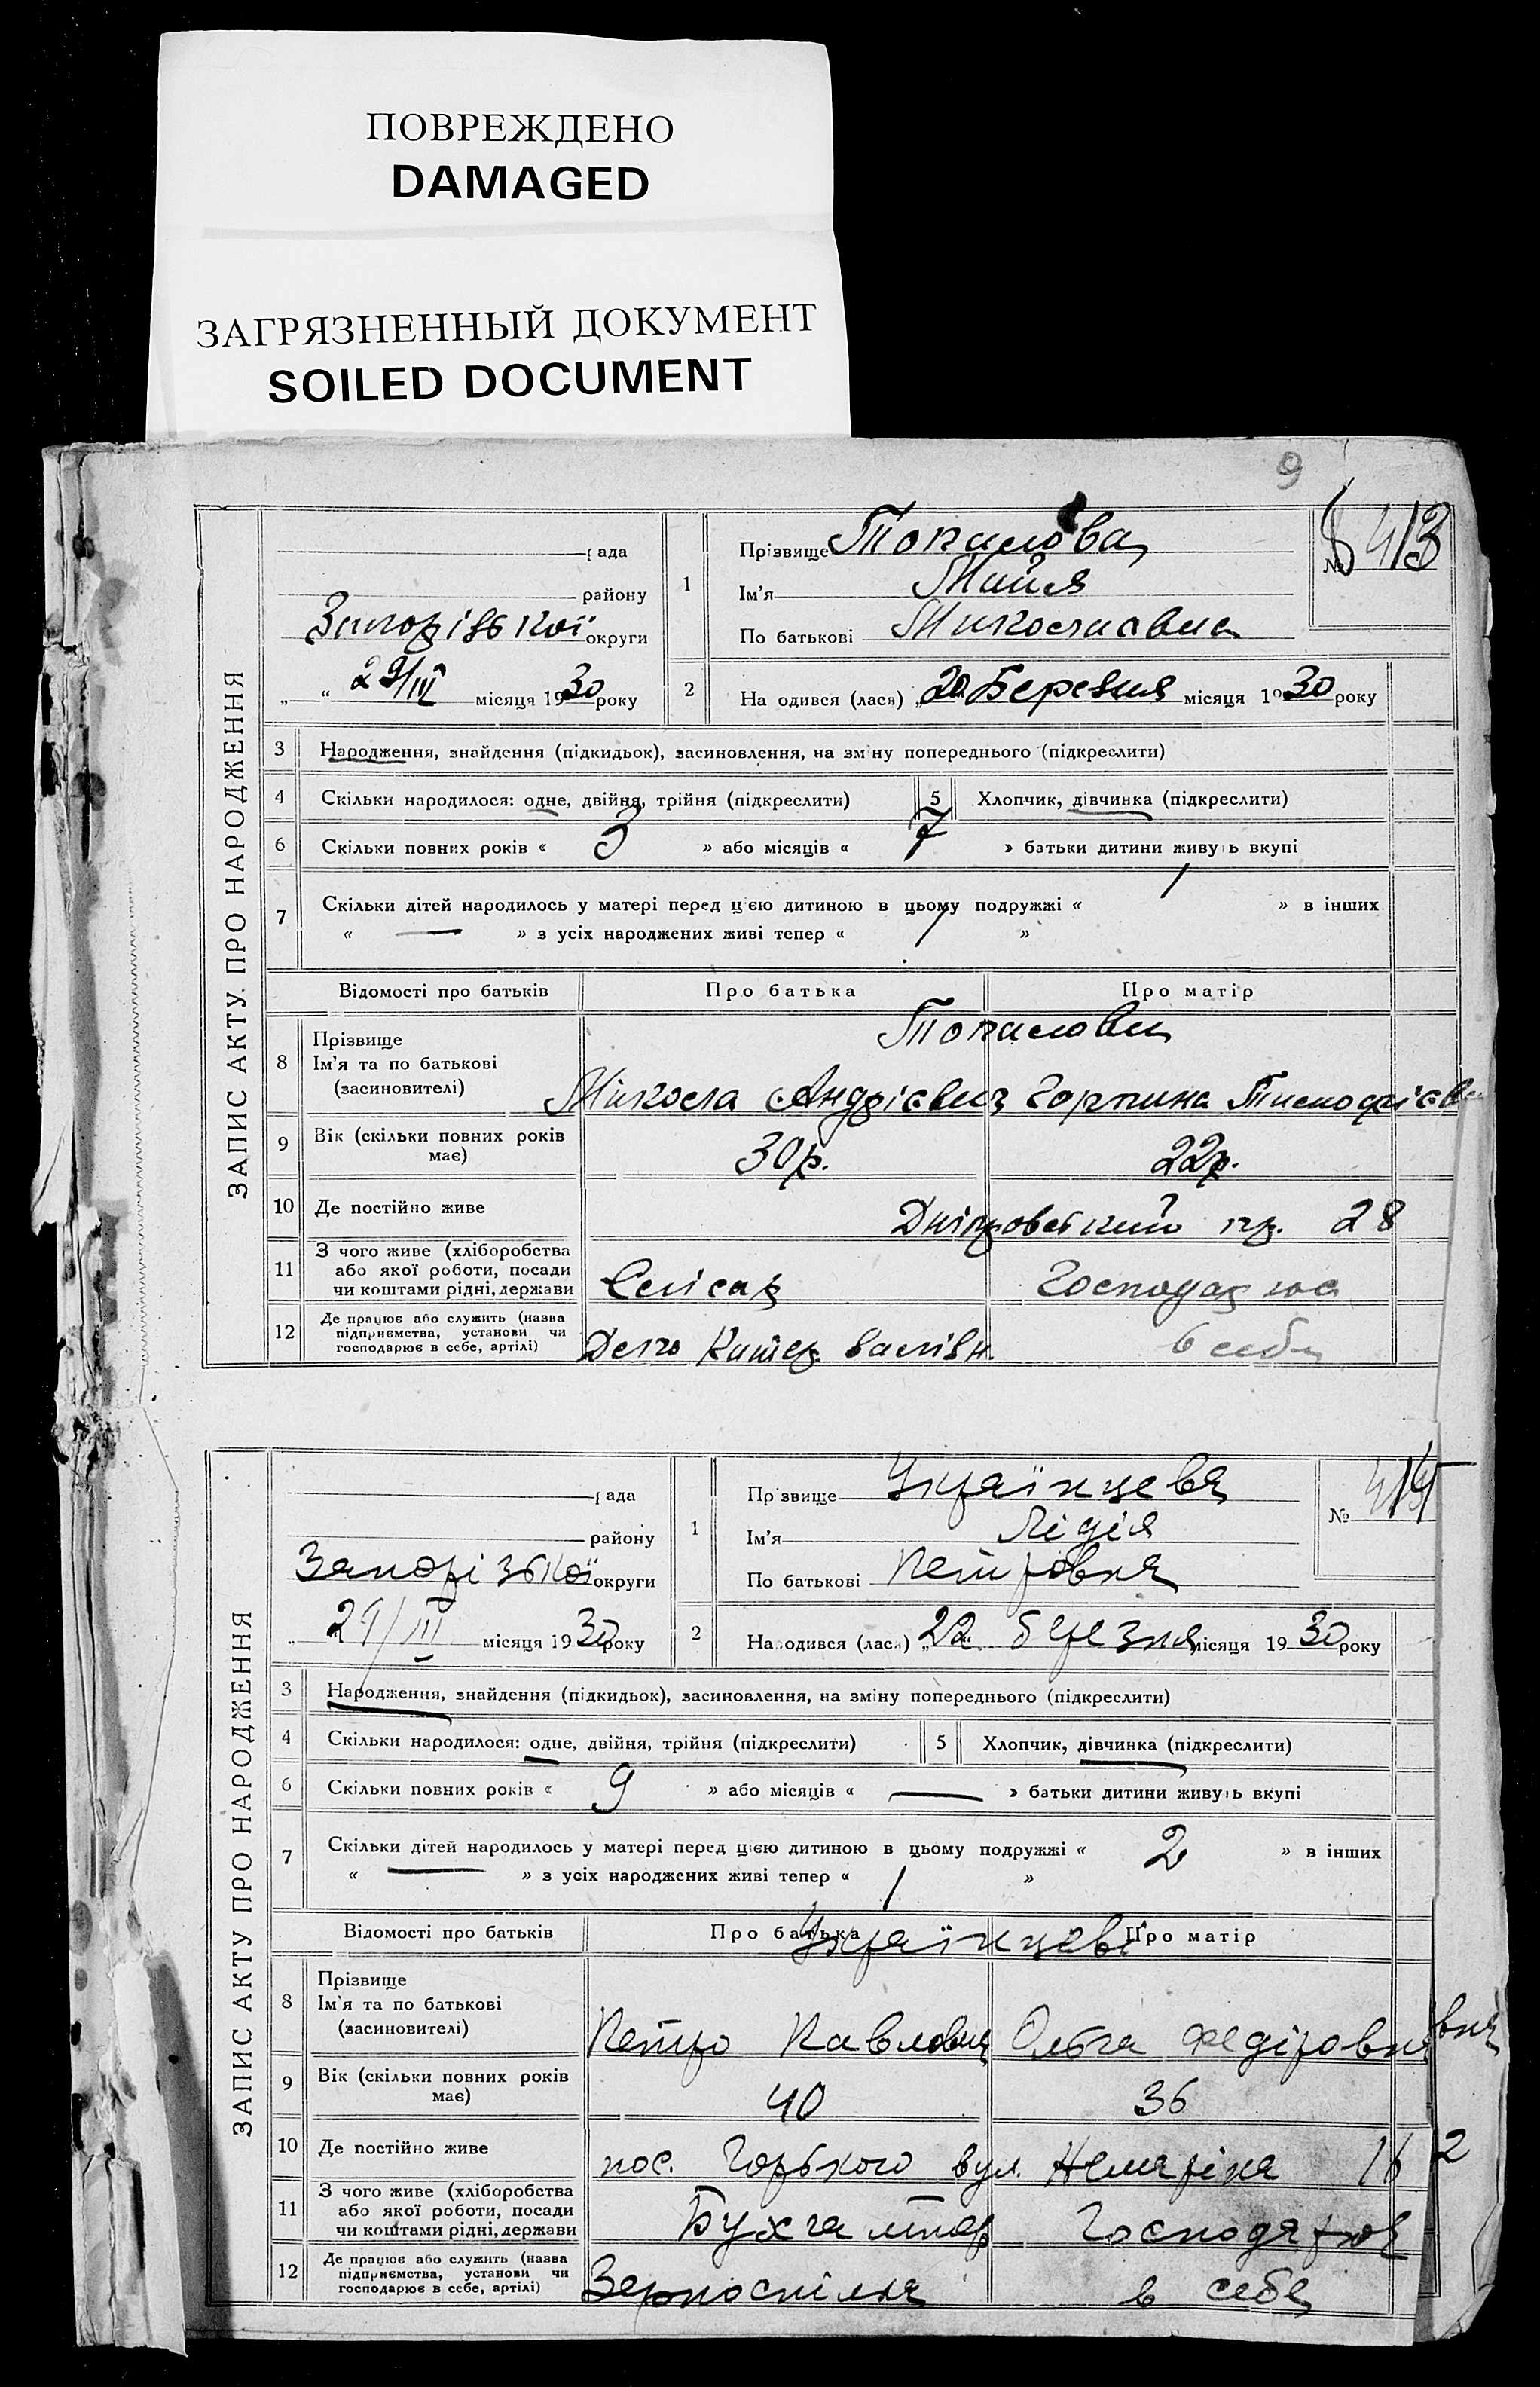 ПОВРЕЖДЕНО
DAMAGED
ЗАГРЯЗНЕННЫЙ ДОКУМЕНТ
SOILED DOCUMENT
9
ЗАПИС АКТУ ПРО НАРОДЖЕННЯ
рада
району
Запорізької округи
„ “ 29/III місяця 1930 року
1 Прізвище Топалова
Ім'я Майя
По батькові Миколаівна
№ 413
2 Народився (лася) „20 Березня місяця 1930 року
3 Народження, знайдення (підкидьок), засиновлення, на зміну попереднього (підкреслити)
4 Скільки народилося: одне, двійня, трійня (підкреслити) 5 Хлопчик, дівчинка (підкреслити)
6 Скільки повних років « 3 » або місяців « 7 » батьки дитини живуть вкупі
7 Скільки дітей народилось у матері перед цією дитиною в цьому подружжі « 1 » в інших
« — » з усіх народжених живі тепер « 1 »
Відомості про батьків Про батька Про матір
Топалови
8 Прізвище
Ім'я та по батькові
(засиновителі)
Мікола Андрієвич Горпина
9 Вік (скільки повних років має) 30р. 22р.
10 Де постійно живе Дніпровский пр. 28
11 З чого живе (хліборобства
або якої роботи, посади
чи коштами рідні, держави
Слісар Господарює
12 Де працює або служить (назва
підприємства, установи чи
господарює в себе, артілі)
в себе
ЗАПИС АКТУ ПРО НАРОДЖЕННЯ
рада
району
Запорізької округи
„ 29/III місяця 1930 року
1 Прізвище Українцева
Ім'я Лідія
По батькові Петровна
№ 414
2 Народився (лася) „22 березня місяця 1930 року
3 Народження, знайдення (підкидьок), засиновлення, на зміну попереднього (підкреслити)
4 Скільки народилося: одне, двійня, трійня (підкреслити) 5 Хлопчик, дівчинка (підкреслити)
6 Скільки повних років « 9 » або місяців « — » батьки дитини живуть вкупі
7 Скільки дітей народилось у матері перед цією дитиною в цьому подружжі « 2 » в інших
« — » з усіх народжених живі тепер « 1 »
Відомості про батьків Про батька Про матір
Українцеві
8 Прізвище
Ім'я та по батькові
(засиновителі)
Петро Павлович Ольга Федіровна вна
9 Вік (скільки повних років має) 40 36
10 Де постійно живе пос. Горького вул. 16 2
11 З чого живе (хліборобства
або якої роботи, посади
чи коштами рідні, держави
Бухгалтер Господарює
12 Де працює або служить (назва
підприємства, установи чи
господарює в себе, артілі)
Зерноспілка в себе